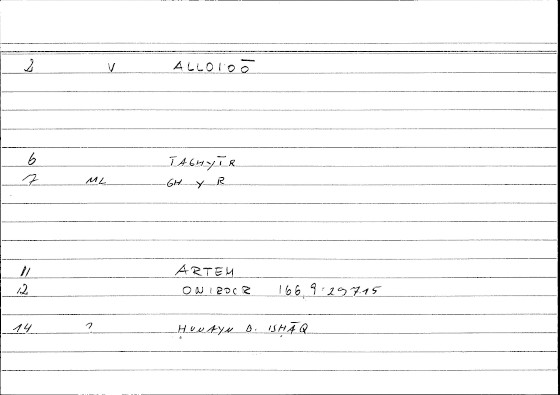 2 V ALLOIOŌ
6 TAGHYĪR
7 ML GH Y R
11 ARTEM
12 ONIROCR 166,9:297,15
14 ? ḤUNAYN B. ISḤĀQ